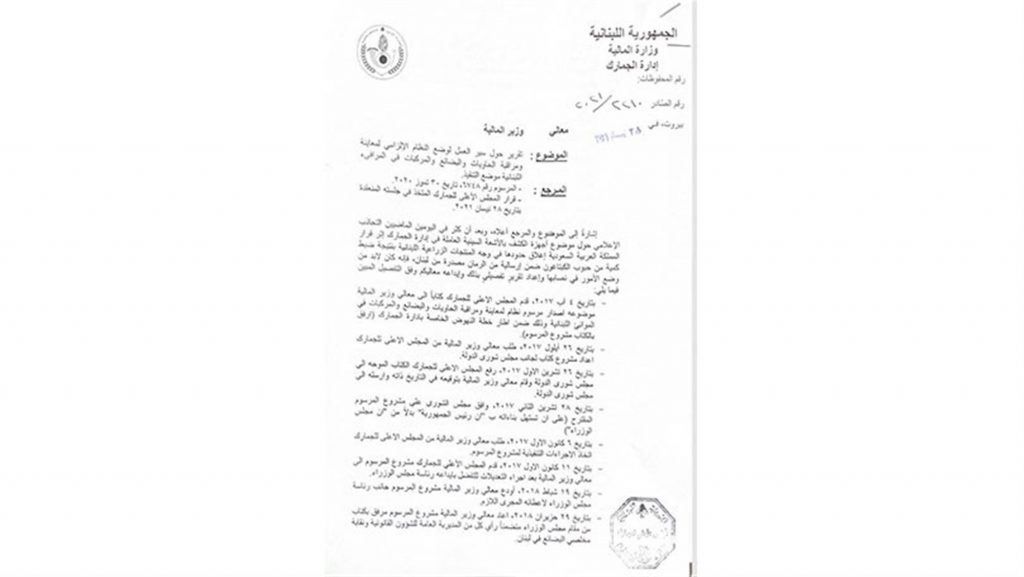 الجمهورية اللبنانية
وزارة المالية
إدارة الجمارك
رقم المحفوظات:
رقم الصادر ٢٢١٠/٢٠٢١
بيروت، في ٢٨ نيسان ٢٠٢١
معالي وزير المالية
الموضوع: تقرير حول سير العمل لوضع النظام الإلزامي لمعاينة
ومراقبة الحاويات والبضائع والمركبات في المرافىء
اللبنانية موضع التنفيذ.
المرجع: - المرسوم رقم ٦٧٤٨، تاريخ ٣٠ تموز ٢٠٢٠.
- قرار المجلس الأعلى للجمارك المتخذ في جلسته المنعقدة
بتاريخ ٢٨ نيسان ٢٠٢١.
إشارة إلى الموضوع والمرجع أعلاه، وبعد أن كثر في اليومين الماضيين التجاذب
الإعلامي حول موضوع أجهزة الكشف بالأشعة السينية العاملة في إدارة الجمارك إثر قرار
المملكة العربية السعودية إغلاق حدودها في وجه المنتجات الزراعية اللبنانية بنتيجة ضبط
كمية من حبوب الكبتاغون ضمن إرسالية من الرمان مصدرة من لبنان، فإنه كان لابد من
وضع الأمور في نصابها وإعداد تقرير تفصيلي بذلك وإيداعه معاليكم وفق التفصيل المبين
فيما يلي:
- بتاريخ ٤ آب ٢٠١٧، قدم المجلس الاعلى للجمارك كتاباً الى معالي وزير المالية
موضوعه اصدار مرسوم نظام لمعاينة ومراقبة الحاويات والبضائع والمركبات في
الموانئ اللبنانية وذلك ضمن اطار خطة النهوض الخاصة بادارة الجمارك (ارفق
بالكتاب مشروع المرسوم).
- بتاريخ ٢٦ أيلول ٢٠١٧، طلب معالي وزير المالية من المجلس الاعلى للجمارك
اعداد مشروع كتاب لجانب مجلس شورى الدولة.
- بتاريخ ٢٦ تشرين الاول ٢٠١٧، رفع المجلس الاعلى للجمارك الكتاب الموجه الى
مجلس شورى الدولة وقام معالي وزير المالية بتوقيعه في التاريخ ذاته وارسله الى
مجلس شورى الدولة.
- بتاريخ ٢٨ تشرين الثاني ٢٠١٧، وافق مجلس الشورى على مشروع المرسوم
المقترح (على ان تستهل بناءاته ب "ان رئيس الجمهورية" بدلاً من "ان مجلس
الوزراء")
- بتاريخ ٦ كانون الاول ٢٠١٧، طلب معالي وزير المالية من المجلس الاعلى للجمارك
اتخاذ الاجراءات التنفيذية لمشروع المرسوم.
- بتاريخ ١١ كانون الاول ٢٠١٧، قدم المجلس الأعلى للجمارك مشروع المرسوم الى
معالي وزير المالية بعد اجراء التعديلات للتفضل بايداعه رئاسة مجلس الوزراء.
- بتاريخ ١٩ شباط ٢٠١٨، أودع معالي وزير المالية مشروع المرسوم جانب رئاسة
مجلس الوزراء لاعطائه المجرى اللازم.
- بتاريخ ٢٩ حزيران ٢٠١٨، اعاد معالي وزير المالية مشروع المرسوم مرفق بكتاب
من مقام مجلس الوزراء متضمناً رأي كل من المديرية العامة للشؤون القانونية ونقابة
مخلصي البضائع في لبنان.